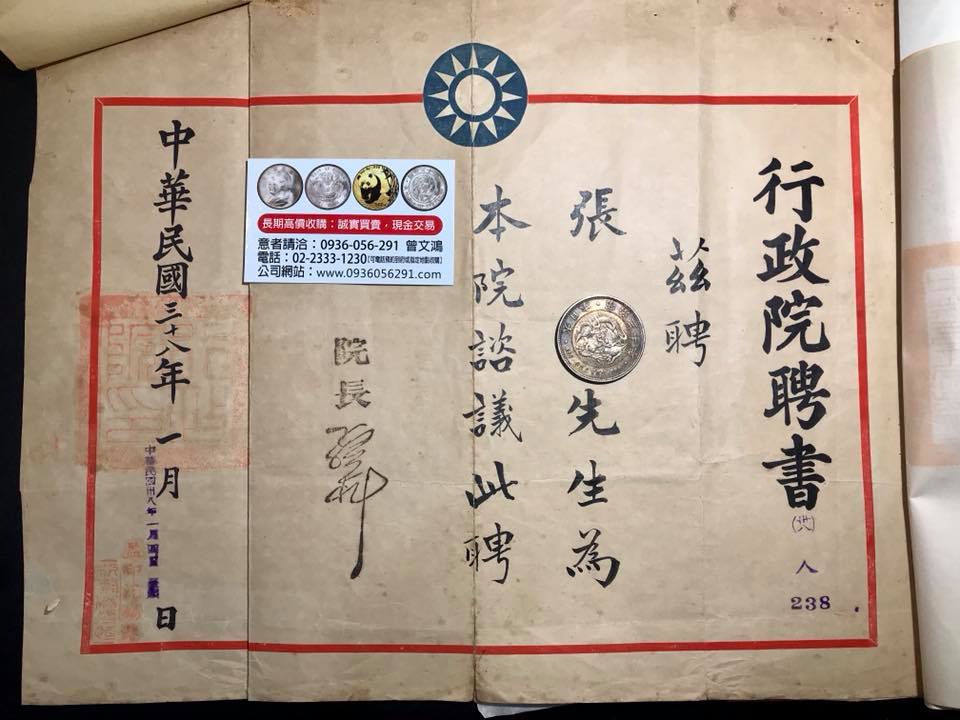 行政院聘書
(卅八)人
238
茲聘
張 先生為
本院諮議此聘
院長
中華民國三十八年 一月 日
長期高價收購：誠實買賣，現金交易
意者請洽：0936-056-291 曾文鴻
電話：02-2333-1230
公司網站：www.0936056291.com